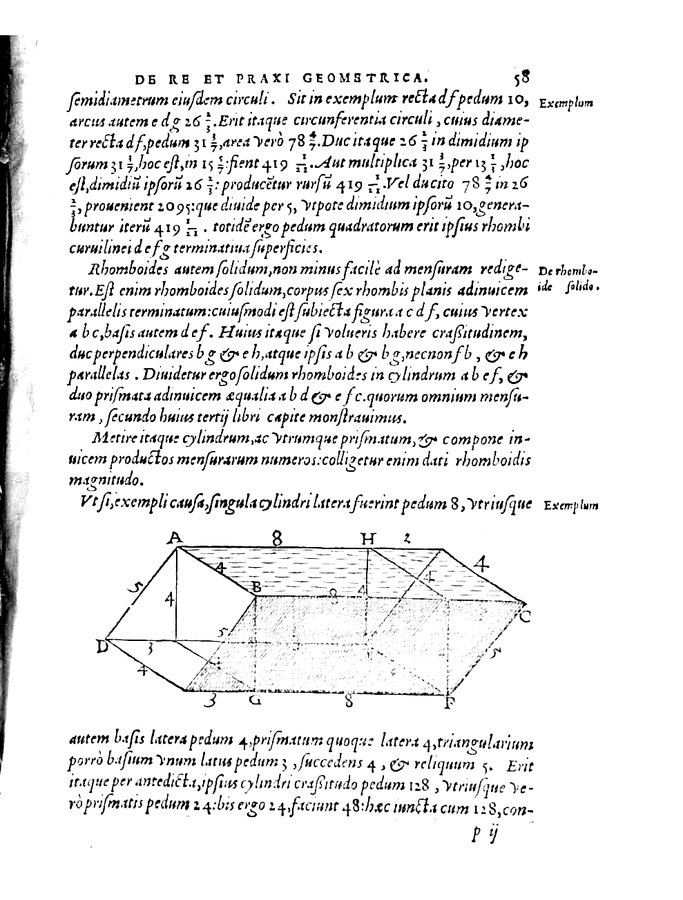 DE RE ET PRAXI GEOMETRICA. 58
ſemidiametrum eiuſdem circuli. Sit in exemplum recta d f pedum 10, Exemplum
arcus autem e d g 26 2/3. Erit itaque circunferentia circuli, cuius diame-
ter recta d f, pedum 31 3/7, area verò 78 4/7. Duc itaque 26 2/3 in dimidium ip
ſorum 31 3/7, hoc eſt, in 15 5/7: fient 419 1/21. Aut multiplica 31 3/7, per 13 1/3, hoc
eſt, dimidiũ ipſorũ 26 2/3: producẽtur rurſũ 419 1/21. Vel ducito 78 4/7 in 26
2/3, prouenient 2095: que diuide per 5, vtpote dimidium ipſorũ 10, genera-
buntur iterũ 419 1/21. totidẽ ergo pedum quadratorum erit ipſius rhombi
curuilinei d e f g terminatiua ſuperficies.
Rhomboides autem ſolidum, non minus facilè ad menſuram redige- De rhombo-
tur. Eſt enim rhomboides ſolidum, corpus ſex rhombis planis adinuicem ide ſolido.
parallelis terminatum: cuiuſmodi eſt ſubiecta figura a c d f, cuius vertex
a b c, baſis autem d e f. Huius itaque ſi volueris habere craßitudinem,
duc perpendiculares b g & e h, atque ipſis a b & b g, necnon f b, & e h
parallelas. Diuidetur ergo ſolidum rhomboides in cylindrum a b e f, &
duo priſmata adinuicem æqualia a b d & e f c. quorum omnium menſu-
ram, ſecundo huius tertij libri capite monſtrauimus.
Metire itaque cylindrum, ac vtrumque priſmatum, & compone in-
uicem productos menſurarum numeros: colligetur enim dati rhomboidis
magnitudo.
Vt ſi, exempli cauſa, ſingula cylindri latera fuerint pedum 8, vtriuſque Exemplum
A 8 H 2
4 4 4
5 4 B 8 4 C
D 3 5 5
4 3 G 8 F
autem baſis latera pedum 4, priſmatum quoque latera 4, triangularium
porrò baſium vnum latus pedum 3, ſuccedens 4, & reliquum 5. Erit
itaque per antedicta, ipſius cylindri craßitudo pedum 128, vtriuſque ve-
rò priſmatis pedum 24: bis ergo 24, faciunt 48: hæc iuncta cum 128, con-
p ij